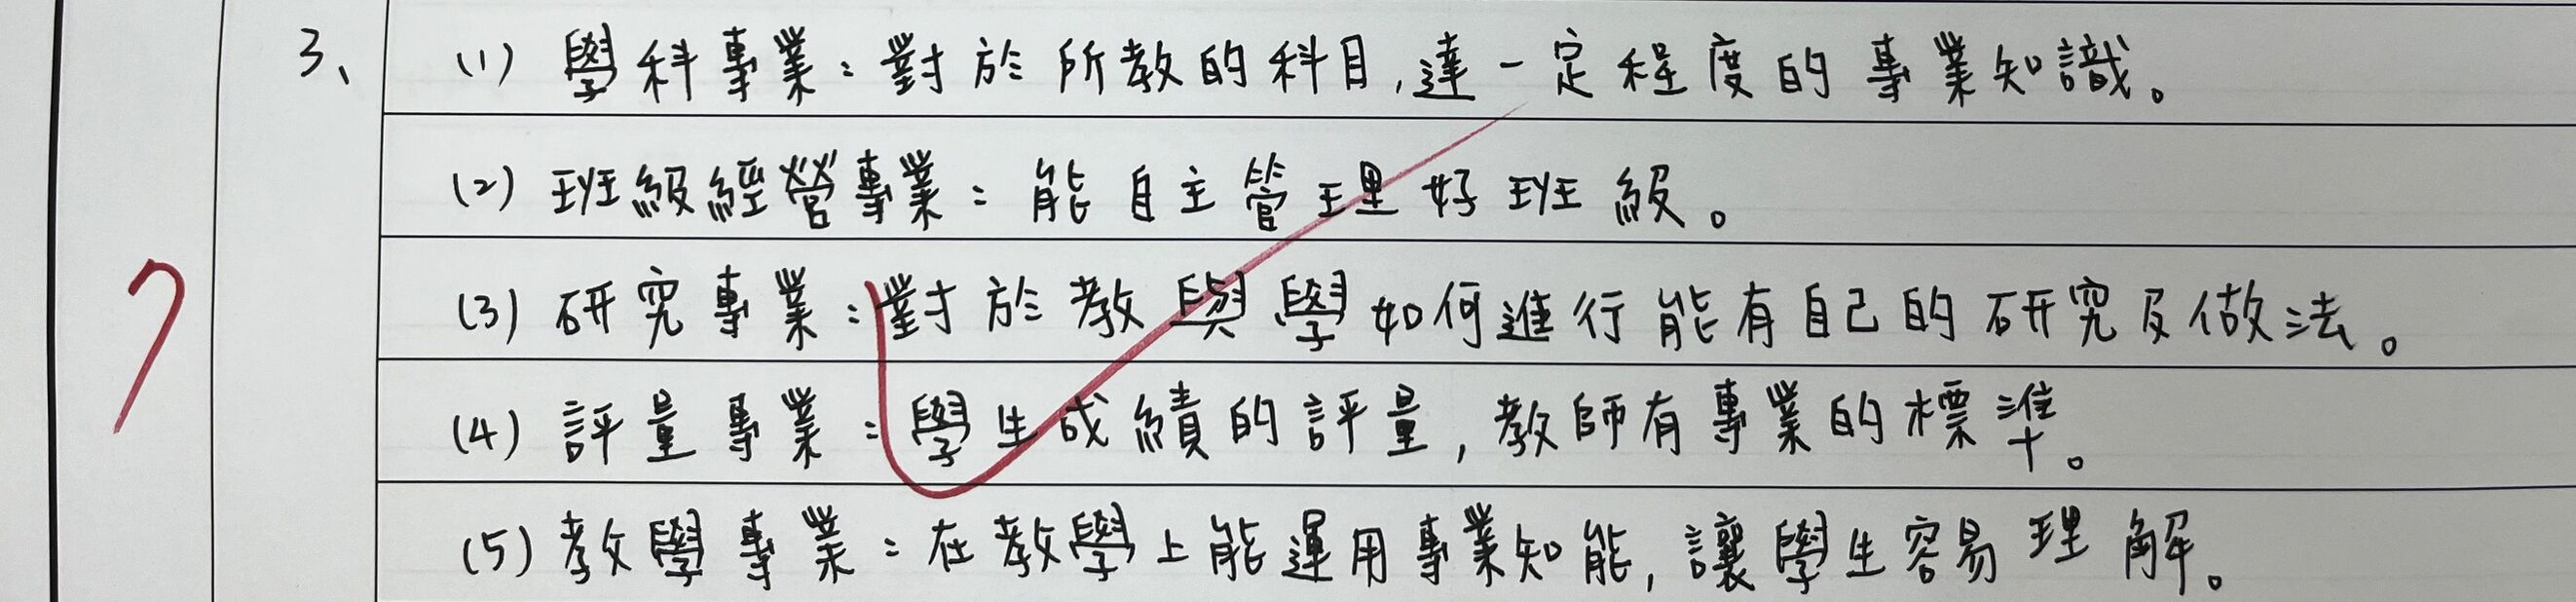 3、 (1) 學科專業：對於所教的科目,達一定程度的專業知識。
(2) 班級經營專業：能自主管理好班級。
7 (3) 研究專業：對於教與學如何進行能有自己的研究及做法。
(4) 評量專業：學生成績的評量,教師有專業的標準。
(5) 教學專業：在教學上能運用專業知能,讓學生容易理解。